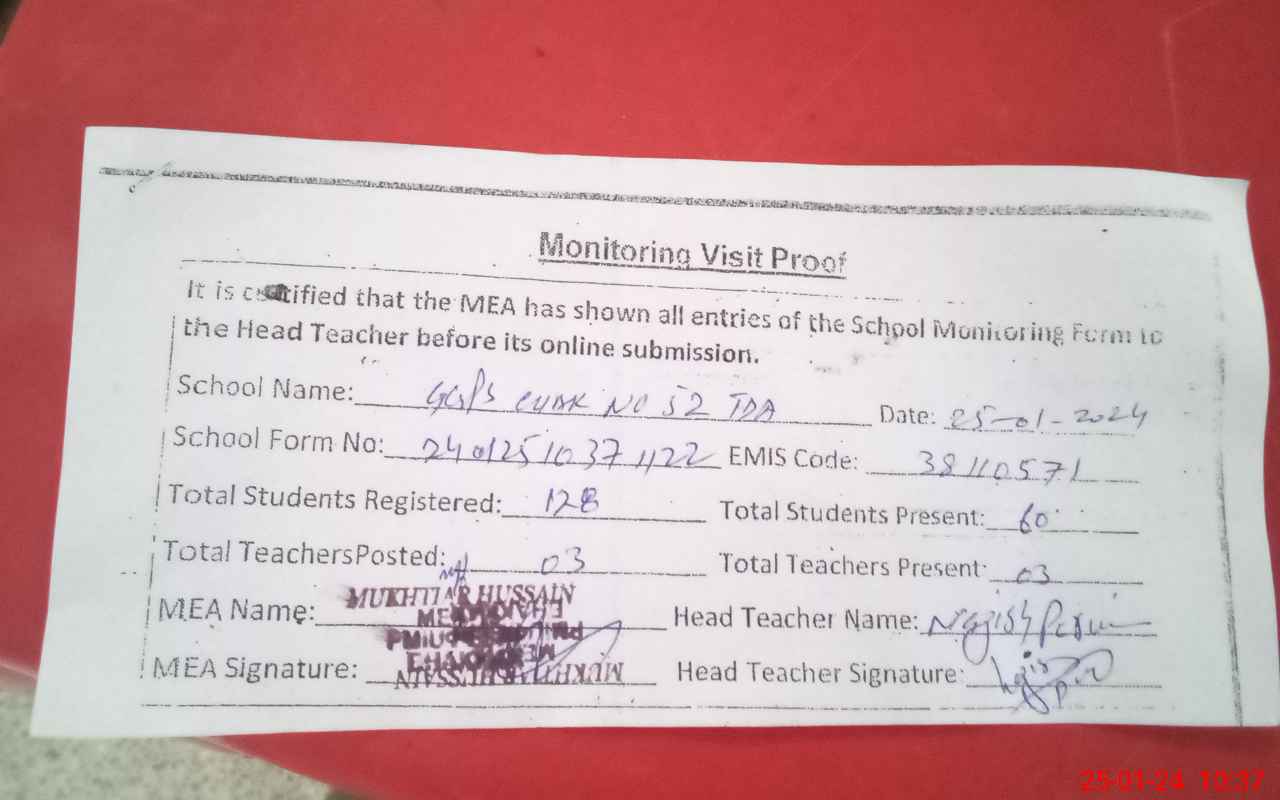 Monitoring Visit Proof
It is certified that the MEA has shown all entries of the School Monitoring Form to
the Head Teacher before its online submission.
School Name: GGPS CHAK NO 52 TDA Date: 25-01-2024
School Form No: 24012510371122 EMIS Code: 38110571
Total Students Registered: 128 Total Students Present: 60
Total TeachersPosted: 03 Total Teachers Present: 03
MEA Name: MUKHTIAR HUSSAIN Head Teacher Name:
MEA Signature: MUKHTIAR HUSSAIN Head Teacher Signature:
25-01-24 10:37